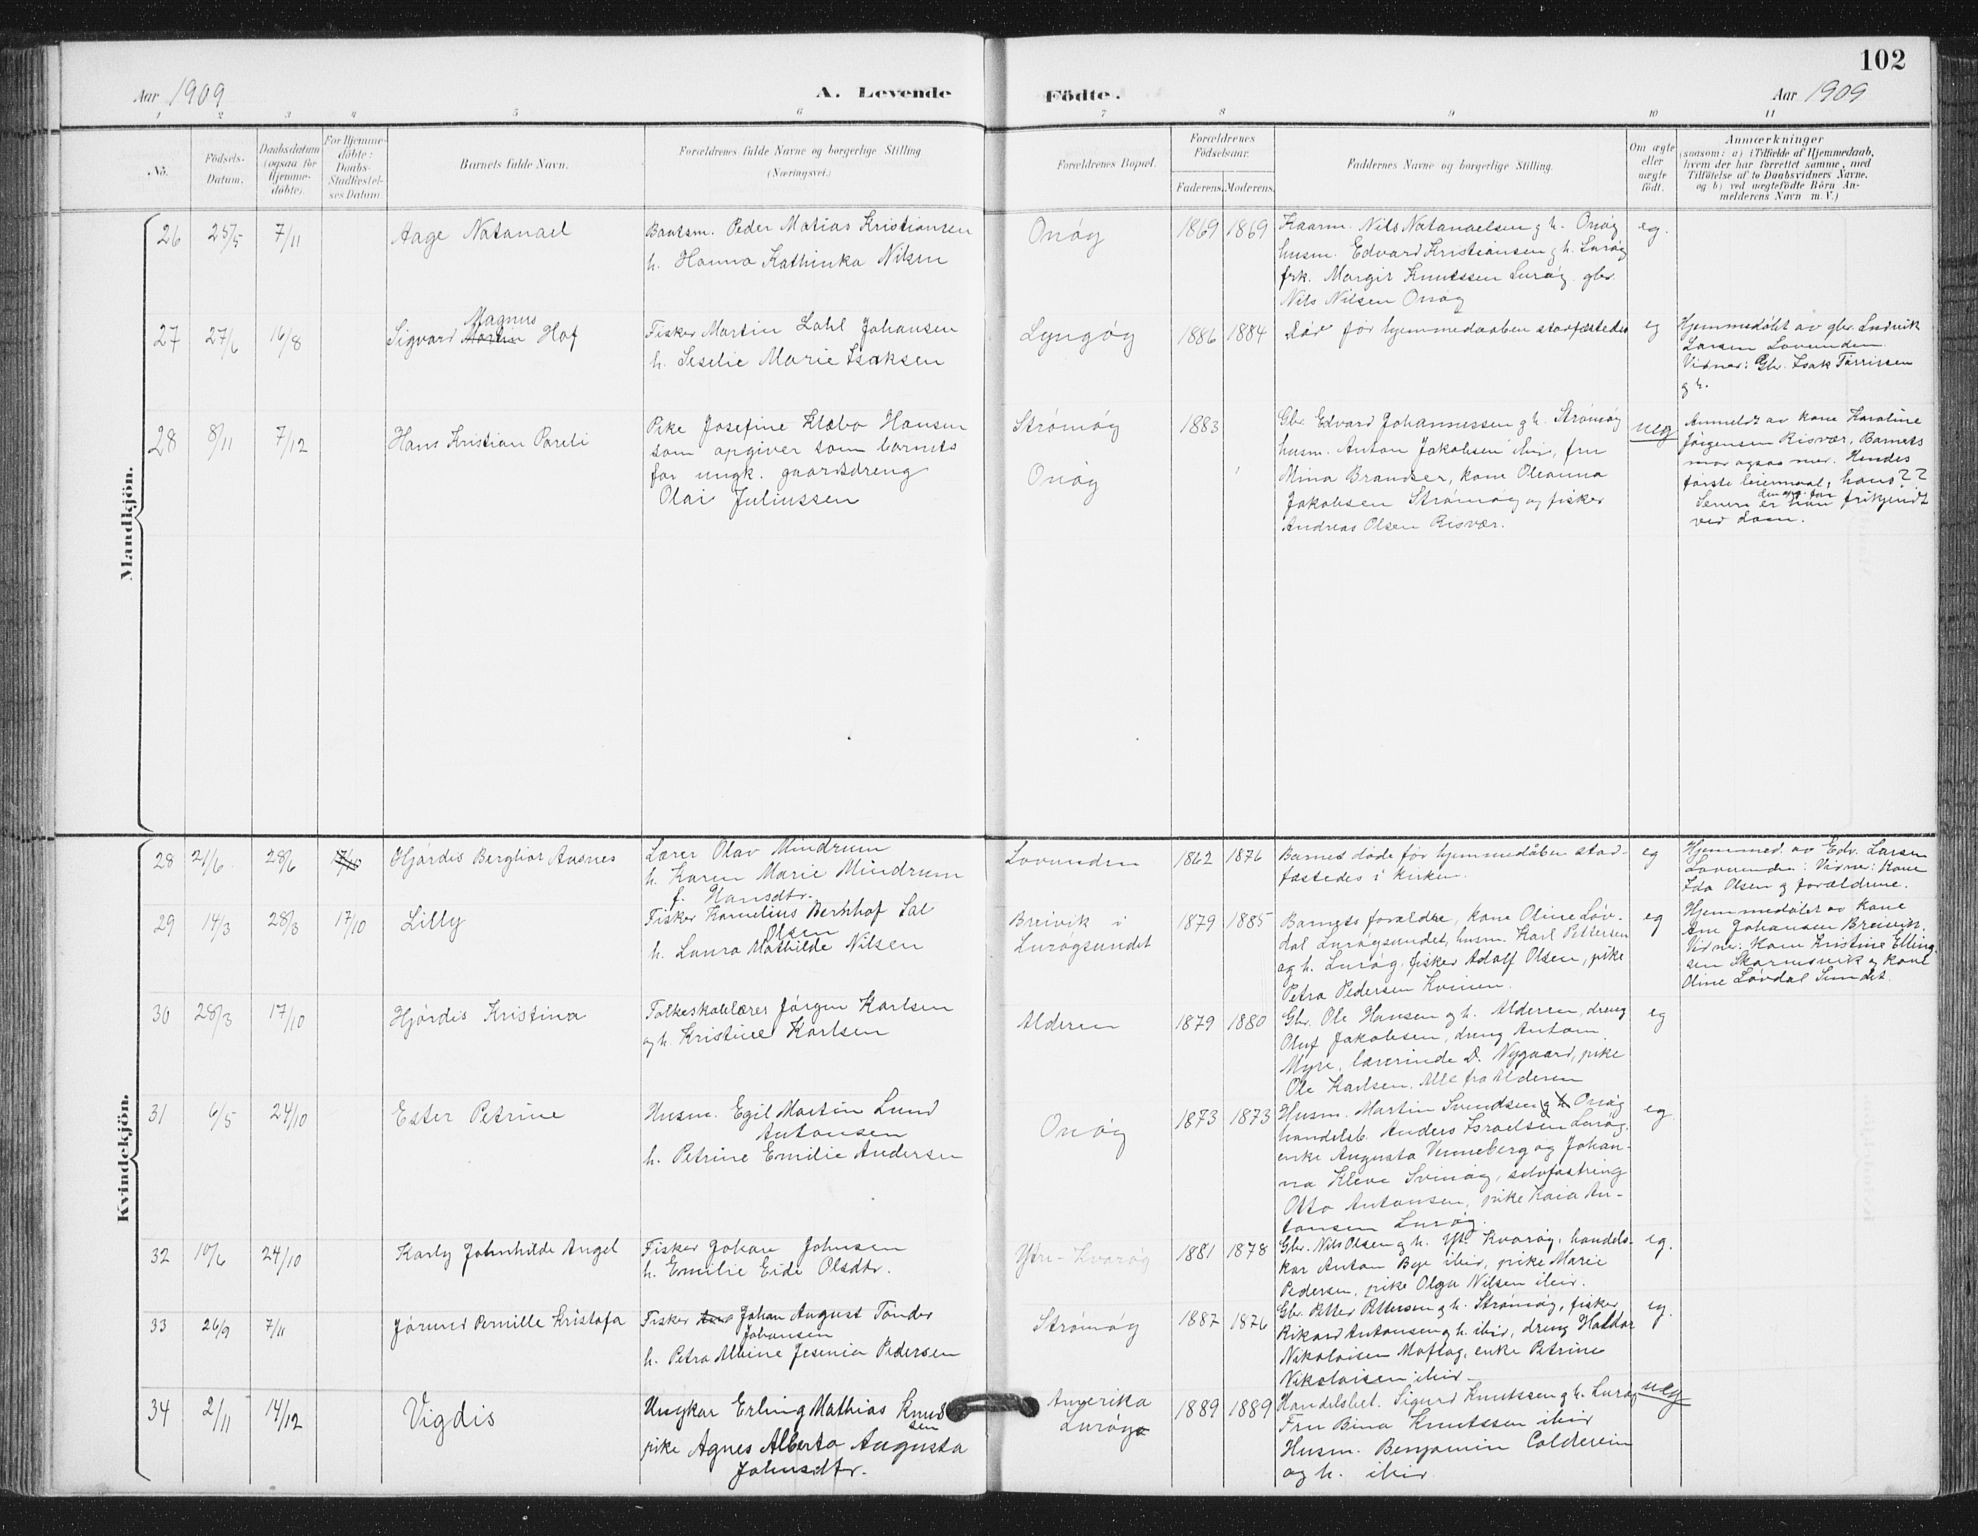 102
Aar 1909
A. Levende Födte.
Aar 1909
1 2 3 4 5 6 7 8 9 10 11
No.
Födsels-
Datum.
Daabsdatum
(ogsaa for
Hjemme-
döbte).
For Hjemme-
döbte:
Daabs-
Stadfæstel-
ses Datum.
Barnets fulde Navn.
Forældrenes fulde Navne og borgerlige Stilling
(Næringsvei.)
Forældrenes Bopæl.
Forældrenes
Födselsaar.
Faderens. Moderens.
Faddernes Navne og borgerlige Stilling.
Om ægte
eller
uægte
födt.
Anmærkninger
(saasom: a) i Tilfælde af Hjemmedaab,
hvem der har forrettet samme, med
Tilföielse af to Daabsvidners Navne,
og b) ved uægtefödte Börn An-
melderens Navn m. V.)
Mandkjön.
26 25/5 7/11 Aage Natanael
Baatsm. Peder Matias Kristiansen
h. Hanna Kathinka Nilsen
Onøy 1869 1869
Kaarm. Nils Natanaelsen g h. Onøy
husm. Edvard Kristiansen g h. Lurøy
frk. Margit Knutssen Lurøy. gbr.
Nils Nilsen Onøy
eg.
27 27/6 16/8
Magnus
Sigvard Martin Hof
Fisker Martin Lohl Johansen
h. Seselie Marie Isaksen
Lyngøy 1886 1884
Død før hjemmedaaben stadfæstedes
eg
Hjemmedøbt av gbr. Ludvik
Larsen Lovunden.
Vidner: Gbr. Isak Tørrissen
g h.
28 8/11 7/12 Hans Kristian Pareli
Pike Josefine Klæbo Hansen
som opgiver som barnets
far ungk. gaardsdreng
Olai Juliussen
Strømøy
Onøy
1883
Gbr. Edvard Johannessen g h. Strømøy
husm. Anton Jakobsen ibid, fru
Mina Brandser, kone Oleanna
Jakobsen Strømøy og fisker
Andreas Olsen Risvær.
ueg
Anmeldt av kone Karoline
Jørgensen Risvær. Barnets
mor ogsaa mer. Hendes
første leiermaal, hans??
Senere er han frikjendt
ved Dom.
Kvindekjön.
28 21/6 28/6 17/10 Hjørdis Bergliot Aasnes
Lærer Olav Mindrum
h. Karen Marie Mindrum
f. Hansdtr.
Lovunden 1862 1876
Barnet døde før hjemmedåben stad-
fæstedes i kirken.
eg
Hjemmed. av Edv. Larsen
Lovunden: Vidne: Kone
Ida Olsen g forældrene.
29 14/3 28/3 17/10 Lilly
Fisker Kornelius Berkhof Sal
Olsen
h. Laura Mathilde Nilsen
Breivik i
Lurøysundet
1879 1885
Barnets forældre, kone Oline Løv-
dal Lurøysundet, husm. Karl Pettersen
og h. Lurøy, fisker Adolf Olsen, pike
Petra Pedersen Kvinen.
eg
Hjemmedøbt av Kone
Ane Johansen Breivik.
Vidne: Kone Kristine Elling-
sen Skarmsvik g kone
Oline Løvdal Sundet
30 28/3 17/10 Hjørdis Kristina
Folkeskolelærer Jørgen Karlsen
og h. Kristine Karlsen
Alderen 1879 1880
Gbr. Ole Hansen og h. Alderen, dreng
Oluf Jakobsen, dreng Antoni
Myre, lærerinde D. Nygaard, pike
Ole Karlsen. Alle fra Alderen
eg
31 6/5 24/10 Ester Petrine
Husm. Egil Martin Lund
Antonsen
h. Petrine Emilie Andersen
Onøy 1873 1873
Husm. Martin Svendsen g h Onøy
handelsb. Anders Israelsen Lurøy,
enke Augusta Venneberg og Johan-
na Kleve Svinøy, selvfostring
Otto Antonsen, pike Kaia An-
tonsen Lurøy.
eg.
32 10/6 24/10 Karly Johnhilde Angel
Fisker Johan Johnsen
h. Emilie Eide Olsdtr.
Ytre-Kvarøy 1881 1878
Gbr. Nils Olsen g h. Ytr Kvarøy, handels-
kar Anton Bye ibid, pike Marie
Pedersen, pike Olga Nilsen ibid.
eg.
33 26/9 7/11 Jørund Pernille Kristofa
Fisker Johan August Tønder
Johansen
h. Petra Albine Jesenia Pedersen
Strømøy 1887 1876
Gbr. Petter Pettersen g h. Strømøy, fisker
Rikard Antonsen g h. ibid, dreng Haldor
Nikolaisen Moflag, enke Petrine
Nikolaisen ibid
eg.
34 2/11 14/12 Vigdis
Ungkar Erling Mathias Knud
sen
pike Agnes Alberta Augusta
Johnsdtr.
Amerika
Lurøy
1889 1889
Handelsbet. Sigurd Knutssen g h. Lurøy
Fru Bina Knutssen ibid
Husm. Benjamin Calderein
og h. ibid
ueg